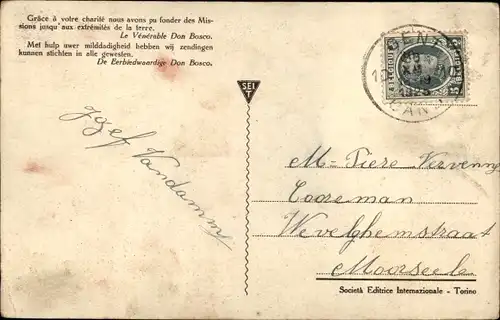 Grâce à votre charité nous avons pu fonder des Mis-
sions jusqu'aux extrémités de la terre.
Le Vénérable Don Bosco.
Met hulp uwer milddadigheid hebben wij zendingen
kunnen stichten in alle gewesten.
De Eerbiedwaardige Don Bosco.
SEI
GENT
GAND
Jozef Vandamme
M- Piere Vervenne
Cooreman
Wevelghemstraat
Moorseele
Società Editrice Internazionale - Torino